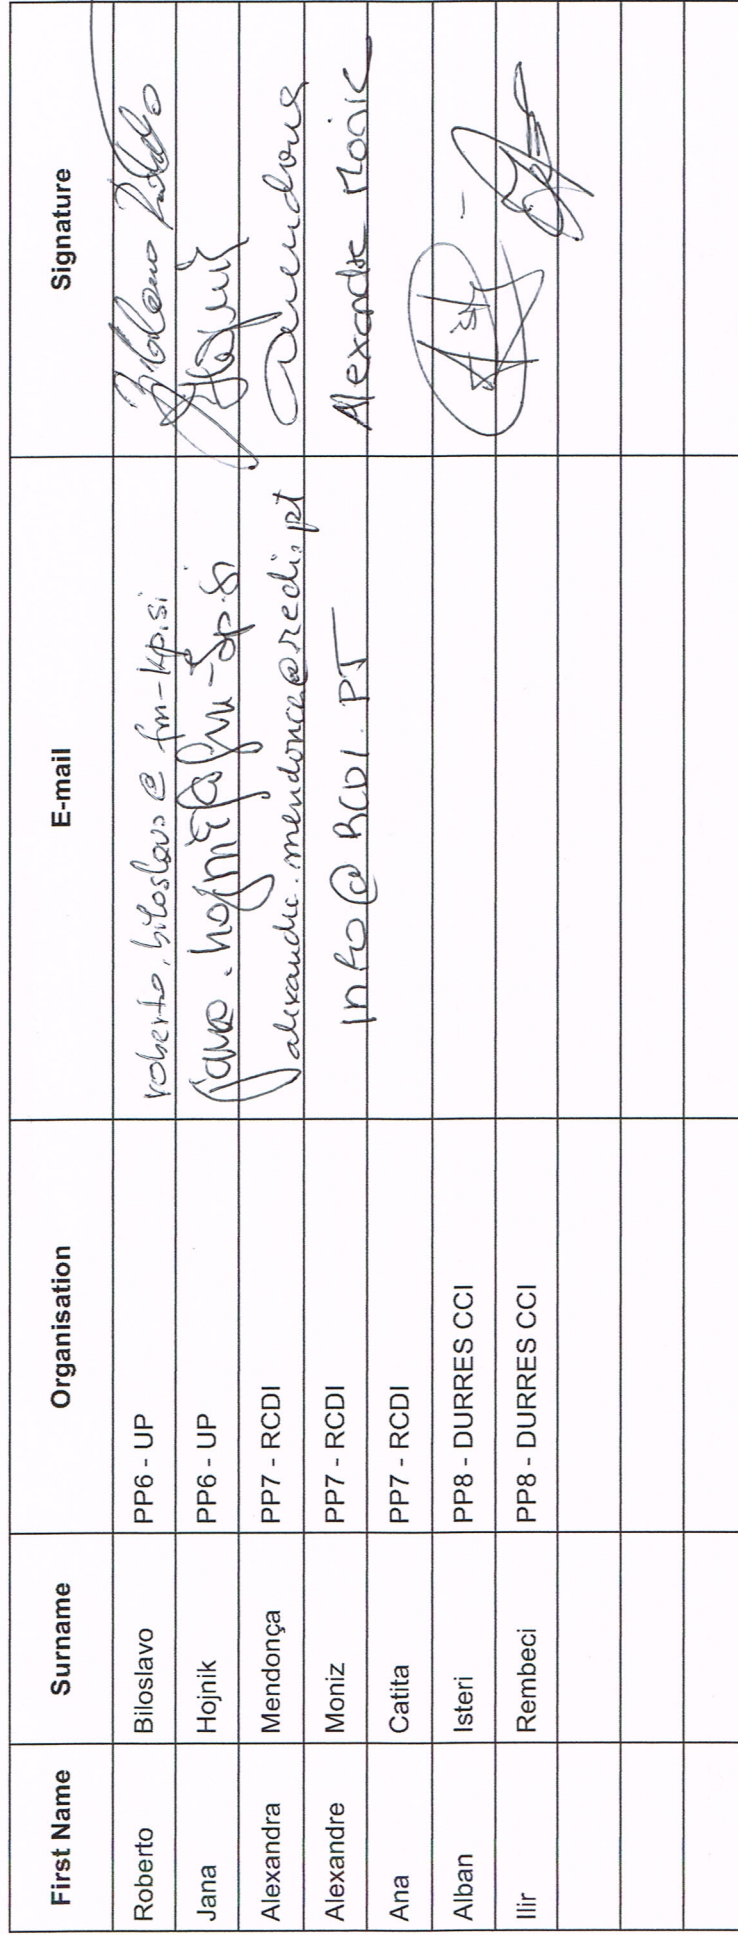 First Name Surname Organisation E-mail Signature
Roberto Biloslavo PP6 - UP roberto.biloslavo@fm-kp.si Biloslavo
Jana Hojnik PP6 - UP jana.hojnik@fm-kp.si Hojnik
Alexandra Mendonça PP7 - RCDI alexandra.mendonca@rcdi.pt Mendonça
Alexandre Moniz PP7 - RCDI info@RCDI.PT Alexandre Moniz
Ana Catita PP7 - RCDI
Alban Isteri PP8 - DURRES CCI
Ilir Rembeci PP8 - DURRES CCI